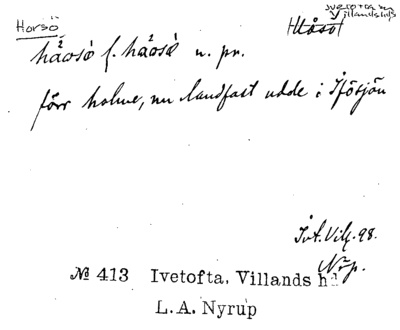 Horsö
Ivetofta sn
Villands hd
håosö f. håosö n. pr.
förr holme, nu landfast udde i Ifösjön
Ivt. Vill. 98.
Np.
№ 413 Ivetofta, Villands hd
L. A. Nyrup